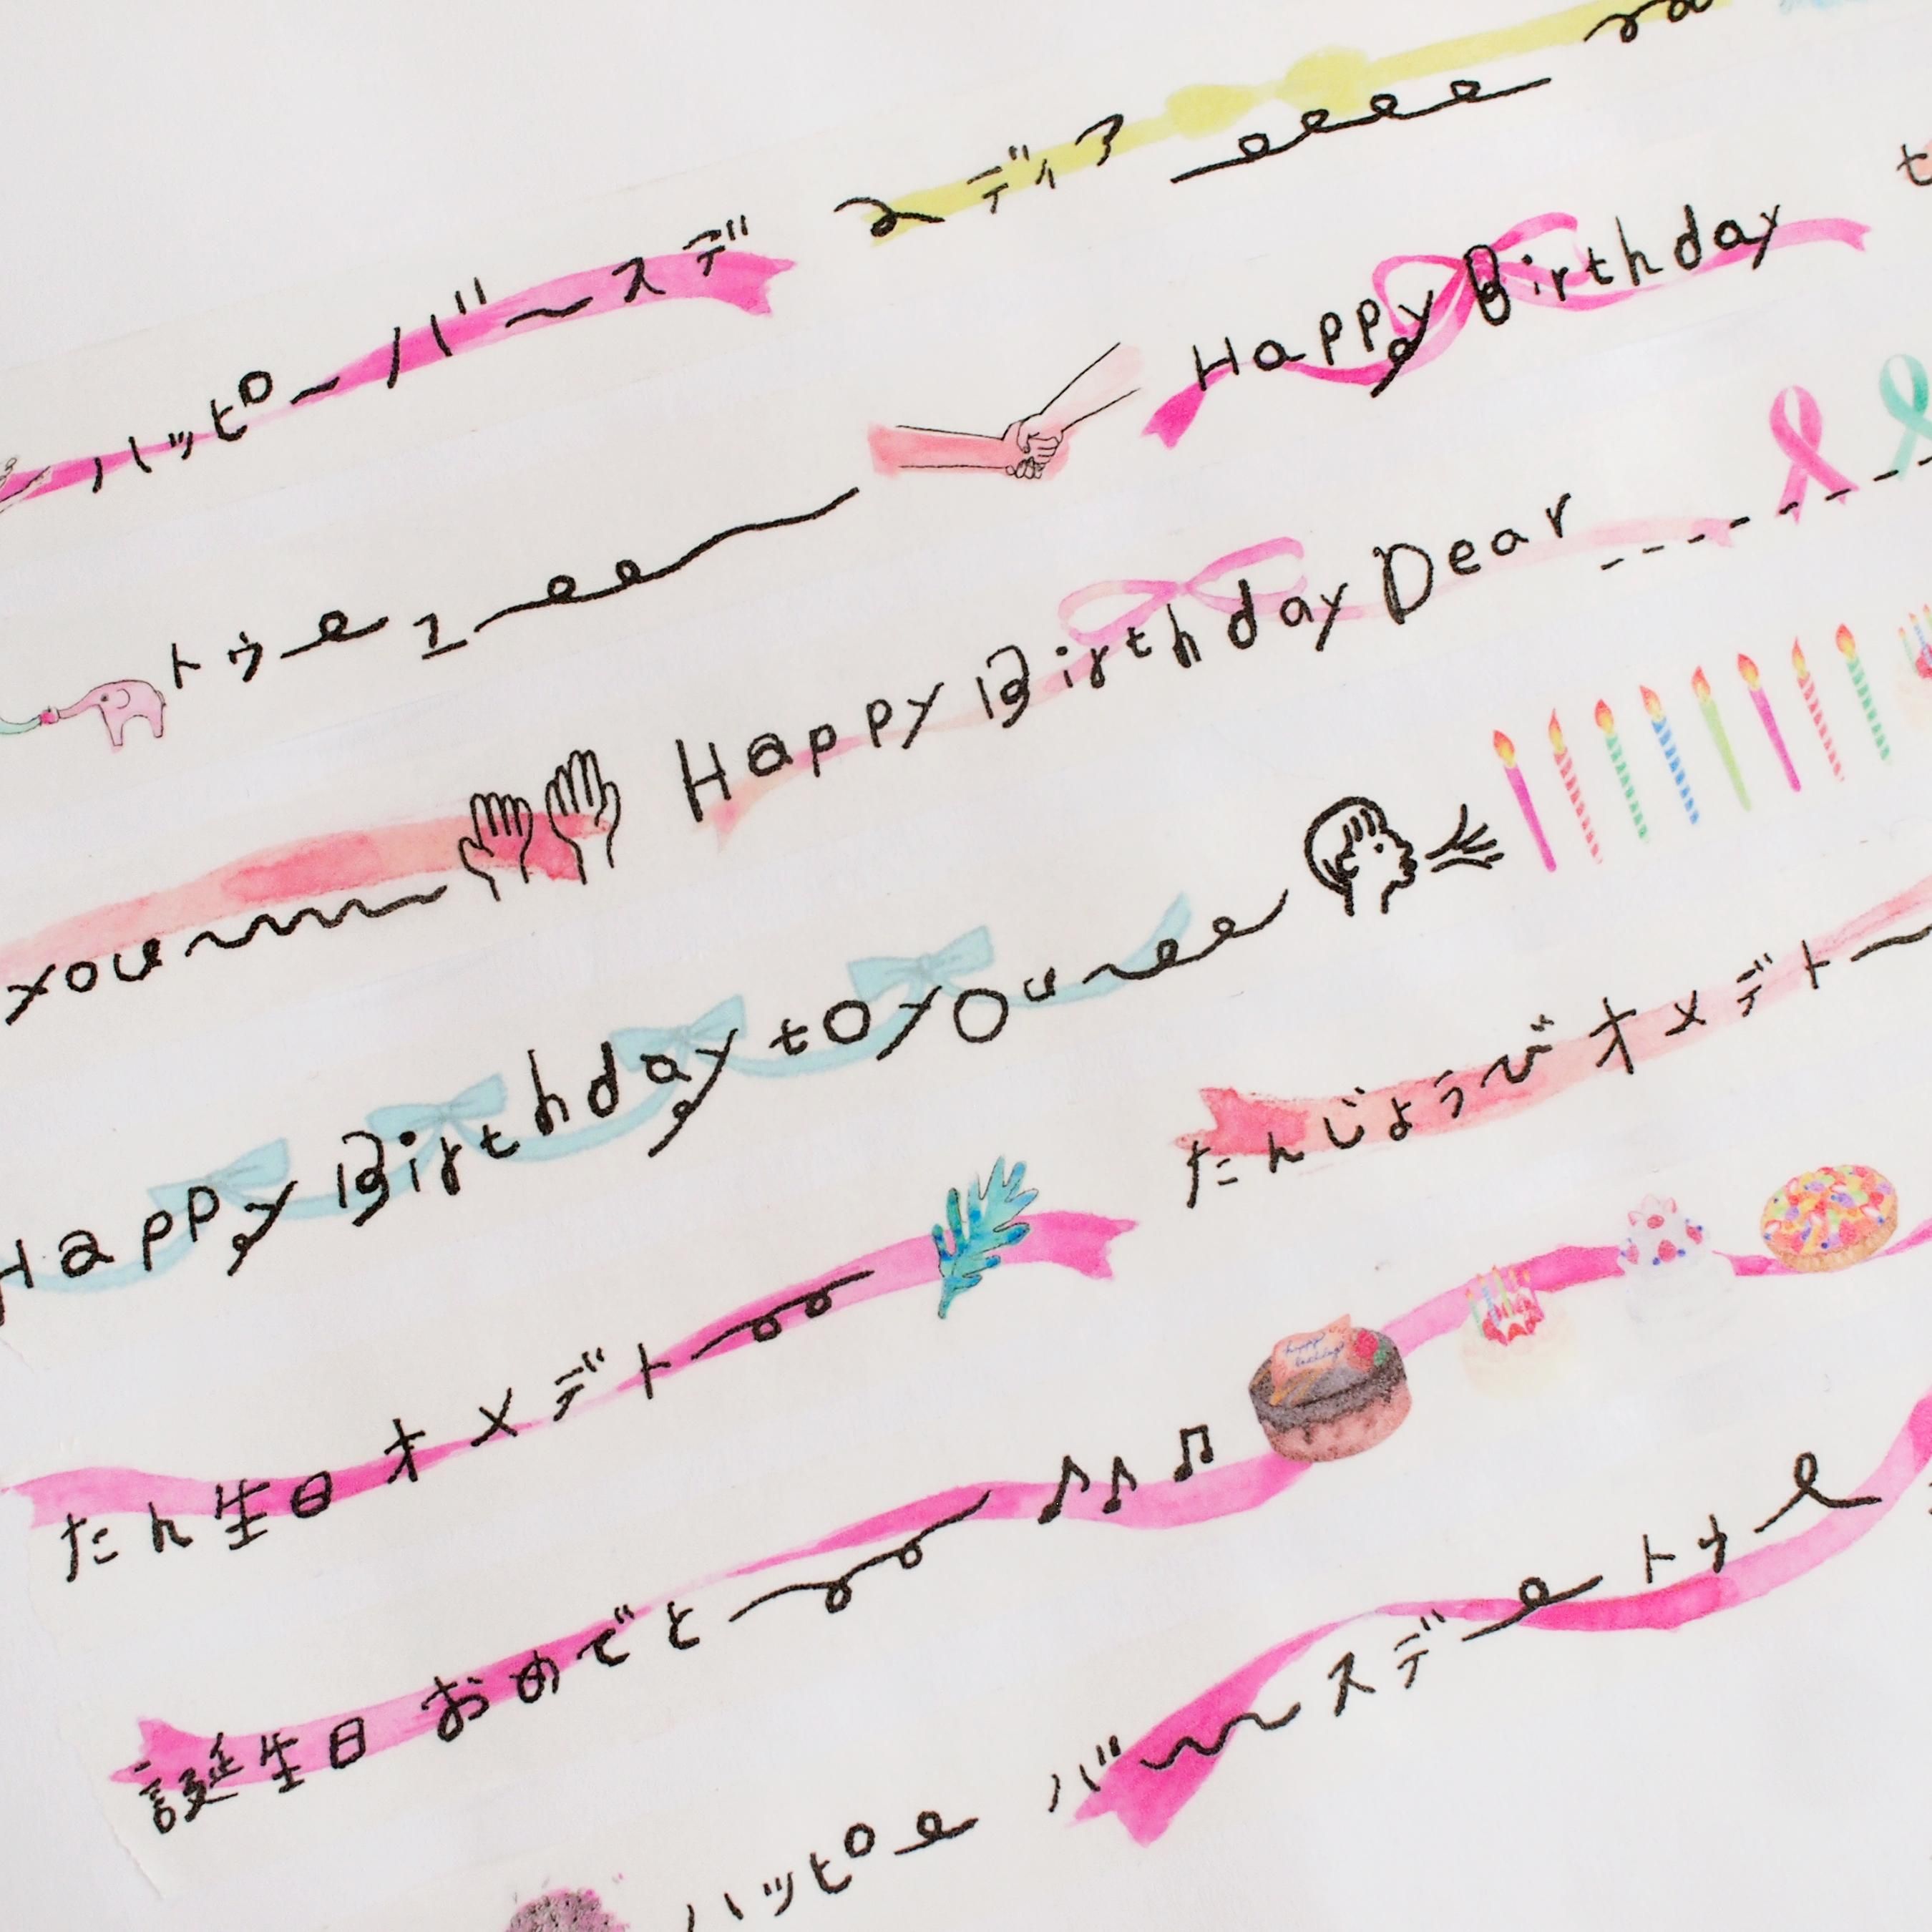 ハッピーバースデ ディア
トゥーユー Happy Birthday t
you Happy Birthday Dear
Happy Birthday to you
たん生日 オメデトー たんじょうび オメデトー
誕生日 おめでとー ♪♪♫ happy birthday
ハッピー バースデートゥー